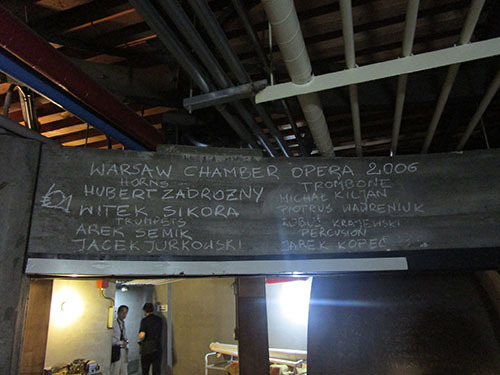 WARSAW CHAMBER OPERA 2006
HORNS
HUBERT ZADROZNY
WITEK SIKORA
TRUMPETS
AREK SEMIK
JACEK JURKOWSKI
TROMBONI
MICHAŁ KILJAN
PIOTRUS WAWRENIUK
KUBUŚ KRAJEWSKI
PERCUSION
JAREK KOPEĆ